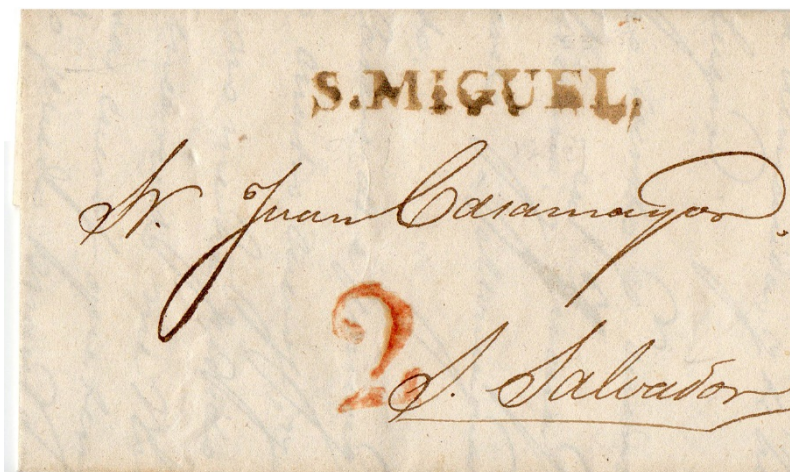 S.MIGUEL.
Sr. Juan Casamayor.
2
S. Salvador